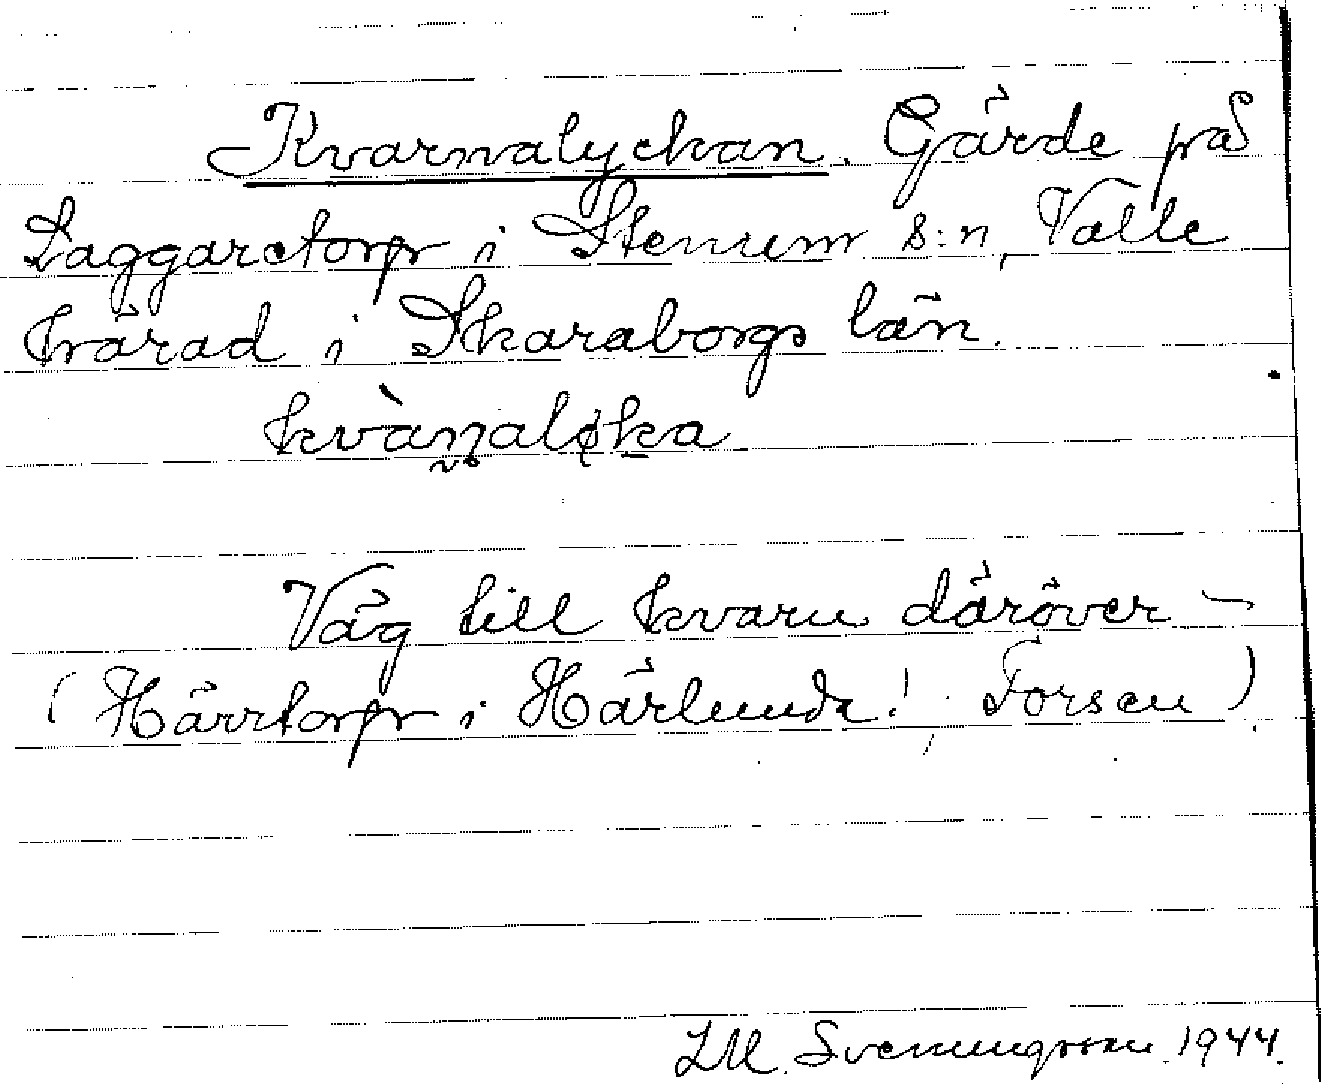 Kvarnalyckan. Gärde på
Laggaretorp i Stenum s:n, Valle
härad i Skaraborgs län.
kvàn̥aløka
Väg till kvarn däröver –
(Härrtorp i Härlunda!, Forsen).
LM. Svenungsson 1944.